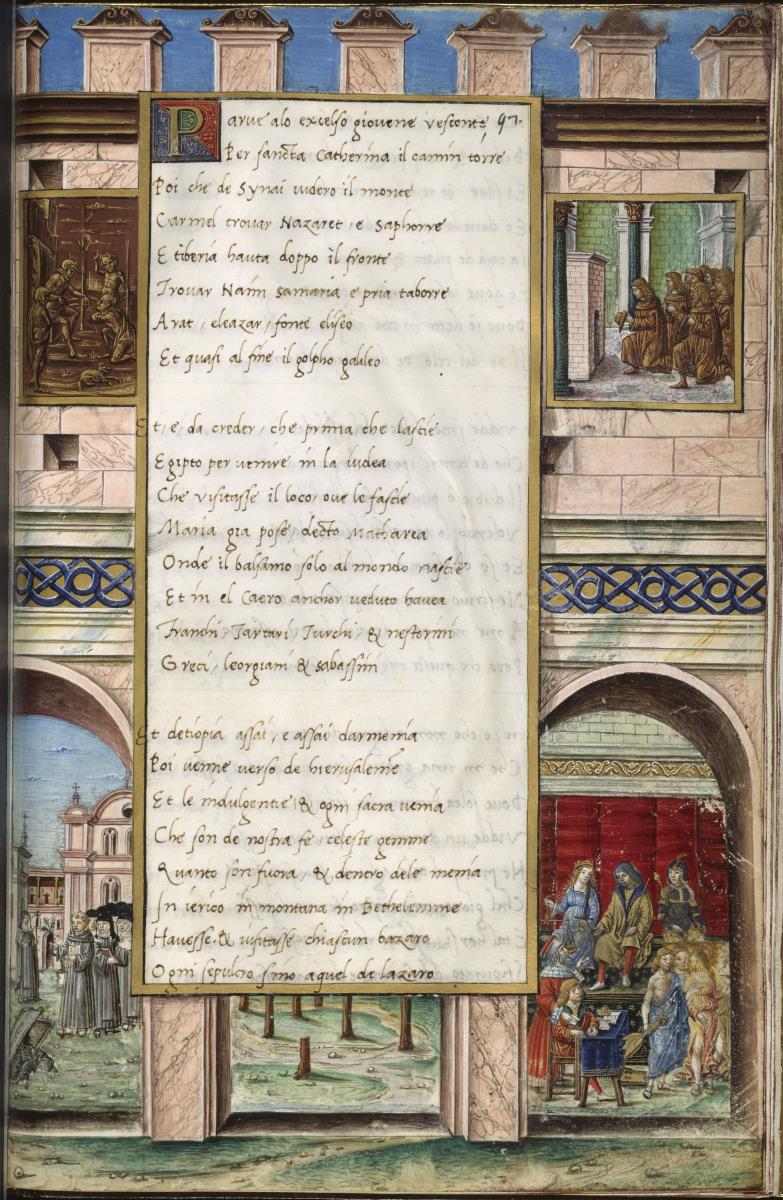 Parve alo excelso giovene vesconte, 97.
Per sancta Catherina il camin torre
Poi che de Synai videro il monte
Carmel trovar Nazaret, e Saphorre
E tiberia havta doppo il fronte
Trovar Naim samaria e pria taborre
Arat, eleazar, fonte eliseo
Et quasi al fine il golpho galileo
Et, e, da creder, che prima, che lascie
Egipto per venire in la iudea
Che visitasse il loco, ove le fascie
Maria gia pose, decto Matharea
Onde il balsamo solo al mondo nascie
Et in el Caero anchor veduto havea
Franchi, Tartari, Turchi, & nestorini
Greci, Georgiani & sabassini
Et detiopia assai, e assai darmenia
Poi venne verso de hierusalemme
Et le indulgentie, & ogni sacra venia
Che son de nostra fe, celeste gemme
Quanto son fuora, & dentro dele menia
In ierico in montana in Bethelemme
Havesse, & visitasse chiascun bazaro
Ogni sepulcro sino aquel de lazaro